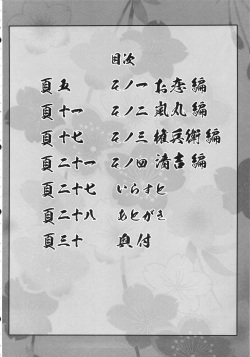 目次
頁五 其ノ一 お恋編
頁十一 其ノ二 嵐丸編
頁十七 其ノ三 権兵衛編
頁二十一 其ノ四 清吉編
頁二十七 いらすと
頁二十八 あとがき
頁三十 奥付